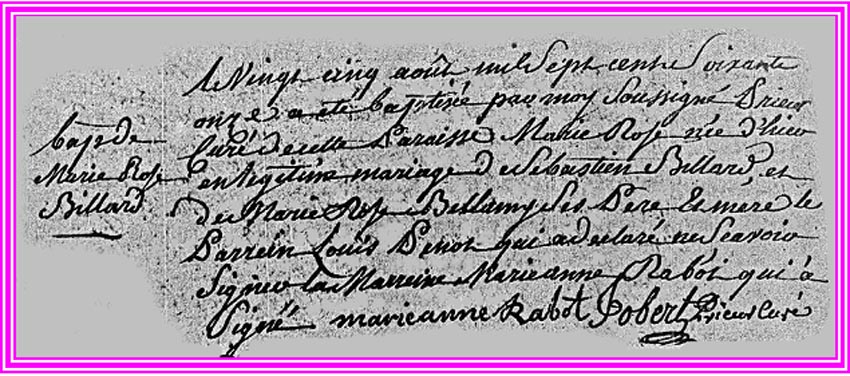 bap. de
Marie Rose
Billard
le Vingt cinq août mil Sept cent Soixante
onze a eté baptisée par moy Soussigné Prieur
Curé de cette Paroisse Marie Rose née d'hier
en legitime mariage de Sebastien Billard et
de Marie Rose Bellamy Ses Pere Et mere le
Parrein Louis Penot qui a declaré ne Scavoir
Signer la Marreine Marieanne Rabot qui a
Signé marieanne Rabot Jobert Prieur Curé